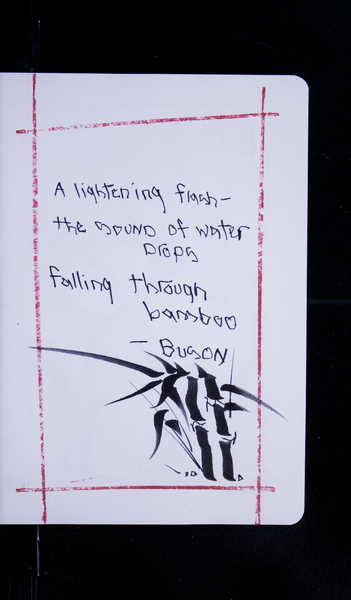 A lightening flash–
the sound of water
Drops
falling through
bamboo
– Buson